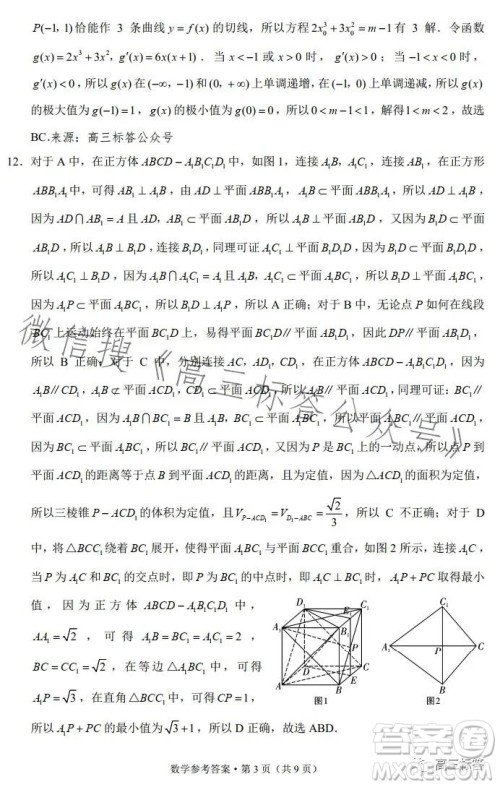 P(-1,1)恰能作 3 条曲线 y=f(x) 的切线，所以方程 2x₀³+3x₀²=m-1 有 3 解．令函数
g(x)=2x³+3x²，g′(x)=6x(x+1)．当 x<-1 或 x>0 时，g′(x)>0；当 -1<x<0 时，
g′(x)<0，所以 g(x) 在(-∞,-1)和(0,+∞)上单调递增，在(-1,0)上单调递减，所以 g(x)
的极大值为 g(-1)=1，g(x) 的极小值为 g(0)=0，所以 0<m-1<1，解得 1<m<2，故选
BC.来源：高三标答公众号
12．对于 A 中，在正方体 ABCD-A₁B₁C₁D₁ 中，如图1，连接 A₁B，A₁C₁，连接 AB₁，在正方形
ABB₁A₁ 中，可得 AB₁⊥A₁B，由 AD⊥平面 ABB₁A₁，A₁B⊂平面 ABB₁A₁，所以 AD⊥A₁B，
因为 AD∩AB₁=A 且 AD，AB₁⊂平面 AB₁D，所以 A₁B⊥平面 AB₁D，又因为 B₁D⊂平面
AB₁D，所以 A₁B⊥B₁D，连接 B₁D₁，同理可证 A₁C₁⊥平面 BDD₁B₁，因为 B₁D⊂平面 BDD₁B₁，
所以 A₁C₁⊥B₁D，因为 A₁B∩A₁C₁=A₁ 且 A₁B，A₁C₁⊂平面 A₁BC₁，所以 B₁D⊥平面 A₁BC₁，因为
A₁P⊂平面 A₁BC₁，所以 B₁D⊥A₁P，所以 A 正确；对于 B 中，无论点 P 如何在线段
BC₁ 上运动始终在平面 BC₁D 上，易得平面 BC₁D∥平面 AB₁D₁，因此 DP∥平面 AB₁D₁，
所以 B 正确．对于 C 中，分别连接 AC，AD₁，CD₁，在正方体 ABCD-A₁B₁C₁D₁ 中，因为
A₁B∥CD₁，A₁B⊄平面 ACD₁，CD₁⊂平面 ACD₁，所以 A₁B∥平面 ACD₁，同理可证：BC₁∥
平面 ACD₁，因为 A₁B∩BC₁=B 且 A₁B，BC₁⊂平面 A₁BC₁，所以平面 A₁BC₁∥平面 ACD₁，
因为 BC₁⊂平面 A₁BC₁，所以 BC₁∥平面 ACD₁，又因为 P 是 BC₁ 上的一动点，所以点 P 到
平面 ACD₁ 的距离等于点 B 到平面 ACD₁ 的距离，且为定值，因为△ACD₁ 的面积为定值，
所以三棱锥 P-ACD₁ 的体积为定值，且 V_{P-ACD₁}=V_{D₁-ABC}=√2/3，所以 C 不正确；对于 D
中，将△BCC₁ 绕着 BC₁ 展开，使得平面 A₁BC₁ 与平面 BCC₁ 重合，如图 2 所示，连接 A₁C，
当 P 为 A₁C 和 BC₁ 的交点时，即 P 为 BC₁ 的中点时，即 A₁P+PC 取得最小
值，因为正方体 ABCD-A₁B₁C₁D₁ 中，
AA₁=√2，可得 A₁B=A₁C₁=BC₁=2，
BC=CC₁=√2，在等边△A₁BC₁ 中可得
A₁P=√3，在直角△BCC₁ 中，可得 CP=1，
所以 A₁P+PC 的最小值为√3+1，所以 D 正确，故选 ABD．
D₁ C₁ A₁ B₁ E P D C A B
图1
C₁ A₁ P C B
图2
数学参考答案·第 3 页（共 9 页）
微信搜《高三标答公众号》
高三标答